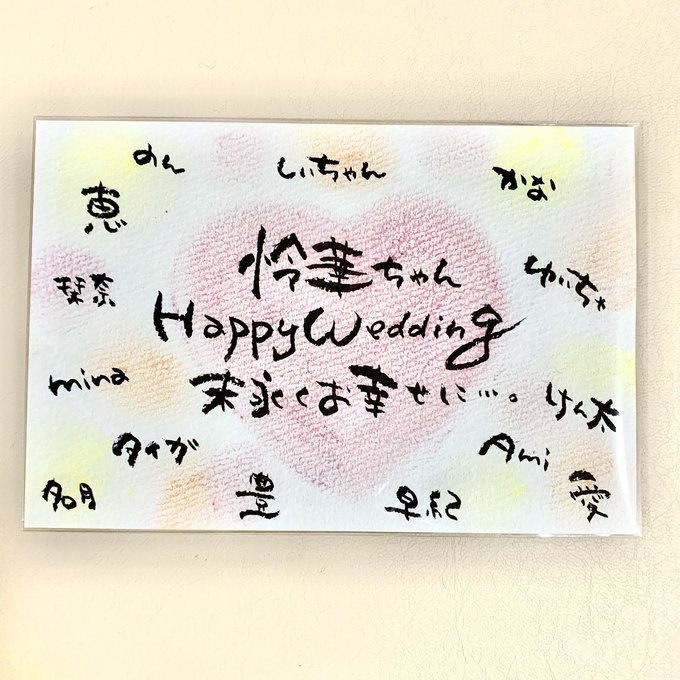 のん
しぃちゃん
かな
恵
怜華ちゃん
ゆいちゃ
栞奈
Happy Wedding
mina
末永くお幸せに…。
けん太
タイガ
Ami
豊
早紀
愛